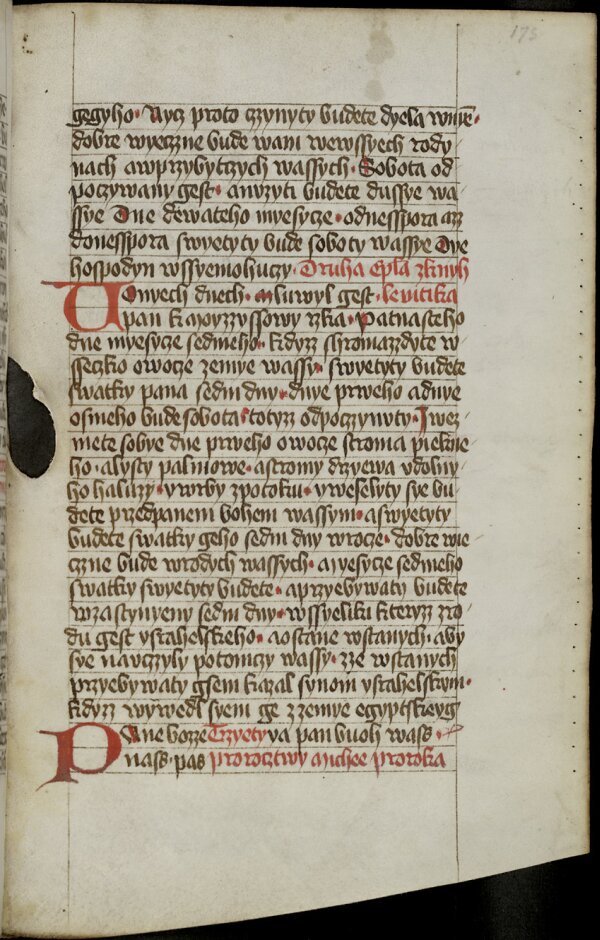 175
gegyho · Nycz proto czynyty budete dyela wnyē·
dobre wyeczne bude wam wewssyech rody
nach awprzybytczych wassych · Sobota od
poczywany gest · anvzyti budete dussye wa
ssye Dne dewateho myesycze · odnesspora az
donesspora swyetyty bude soboty wassye Dye
hospodyn wssyemohuczy · Druha epla zknyh
Wonyech dnech · mluwyl gest · levitika
pan k moyzzyssowy rzka · Patnasteho
dne myesycze sedmeho · kdyz shromazdyte w
sseczko owocze zemye wassy · swyetyty budete
swatky pana sedm dny · dnye prweho adnye
osmeho bude sobota · totyz odpoczynuty · Iwez
mete sobye dne prweho owocze stroma piekne
ho · alysty palmowe · astromy drzyewa vdobny
ho haluzy · ywrby zpotoku · yweselyty sye bu
dete przedpanem bohem wassym · aswyetyty
budete swatky geho sedm dny wrocze · dobre wie
czne bude wrodych wassych · myesycze sedmeho
swatky swyetyty budete · aprzyebywaty budete
wzastynyeny sedm dny · wssyeliki kteryz zro
du gest ysrahelskeho · aostane wstanych · aby
sye nauczyly potomczy wassy · zze wstanych
przyebywaty gsem kazal synom ysrahelskym ·
kdyz wywedl syem ge zzemye egyptskeyg
Pane bozze Trzyety va pan buoh wass ·
nass · pas proroctwy Michee proroka